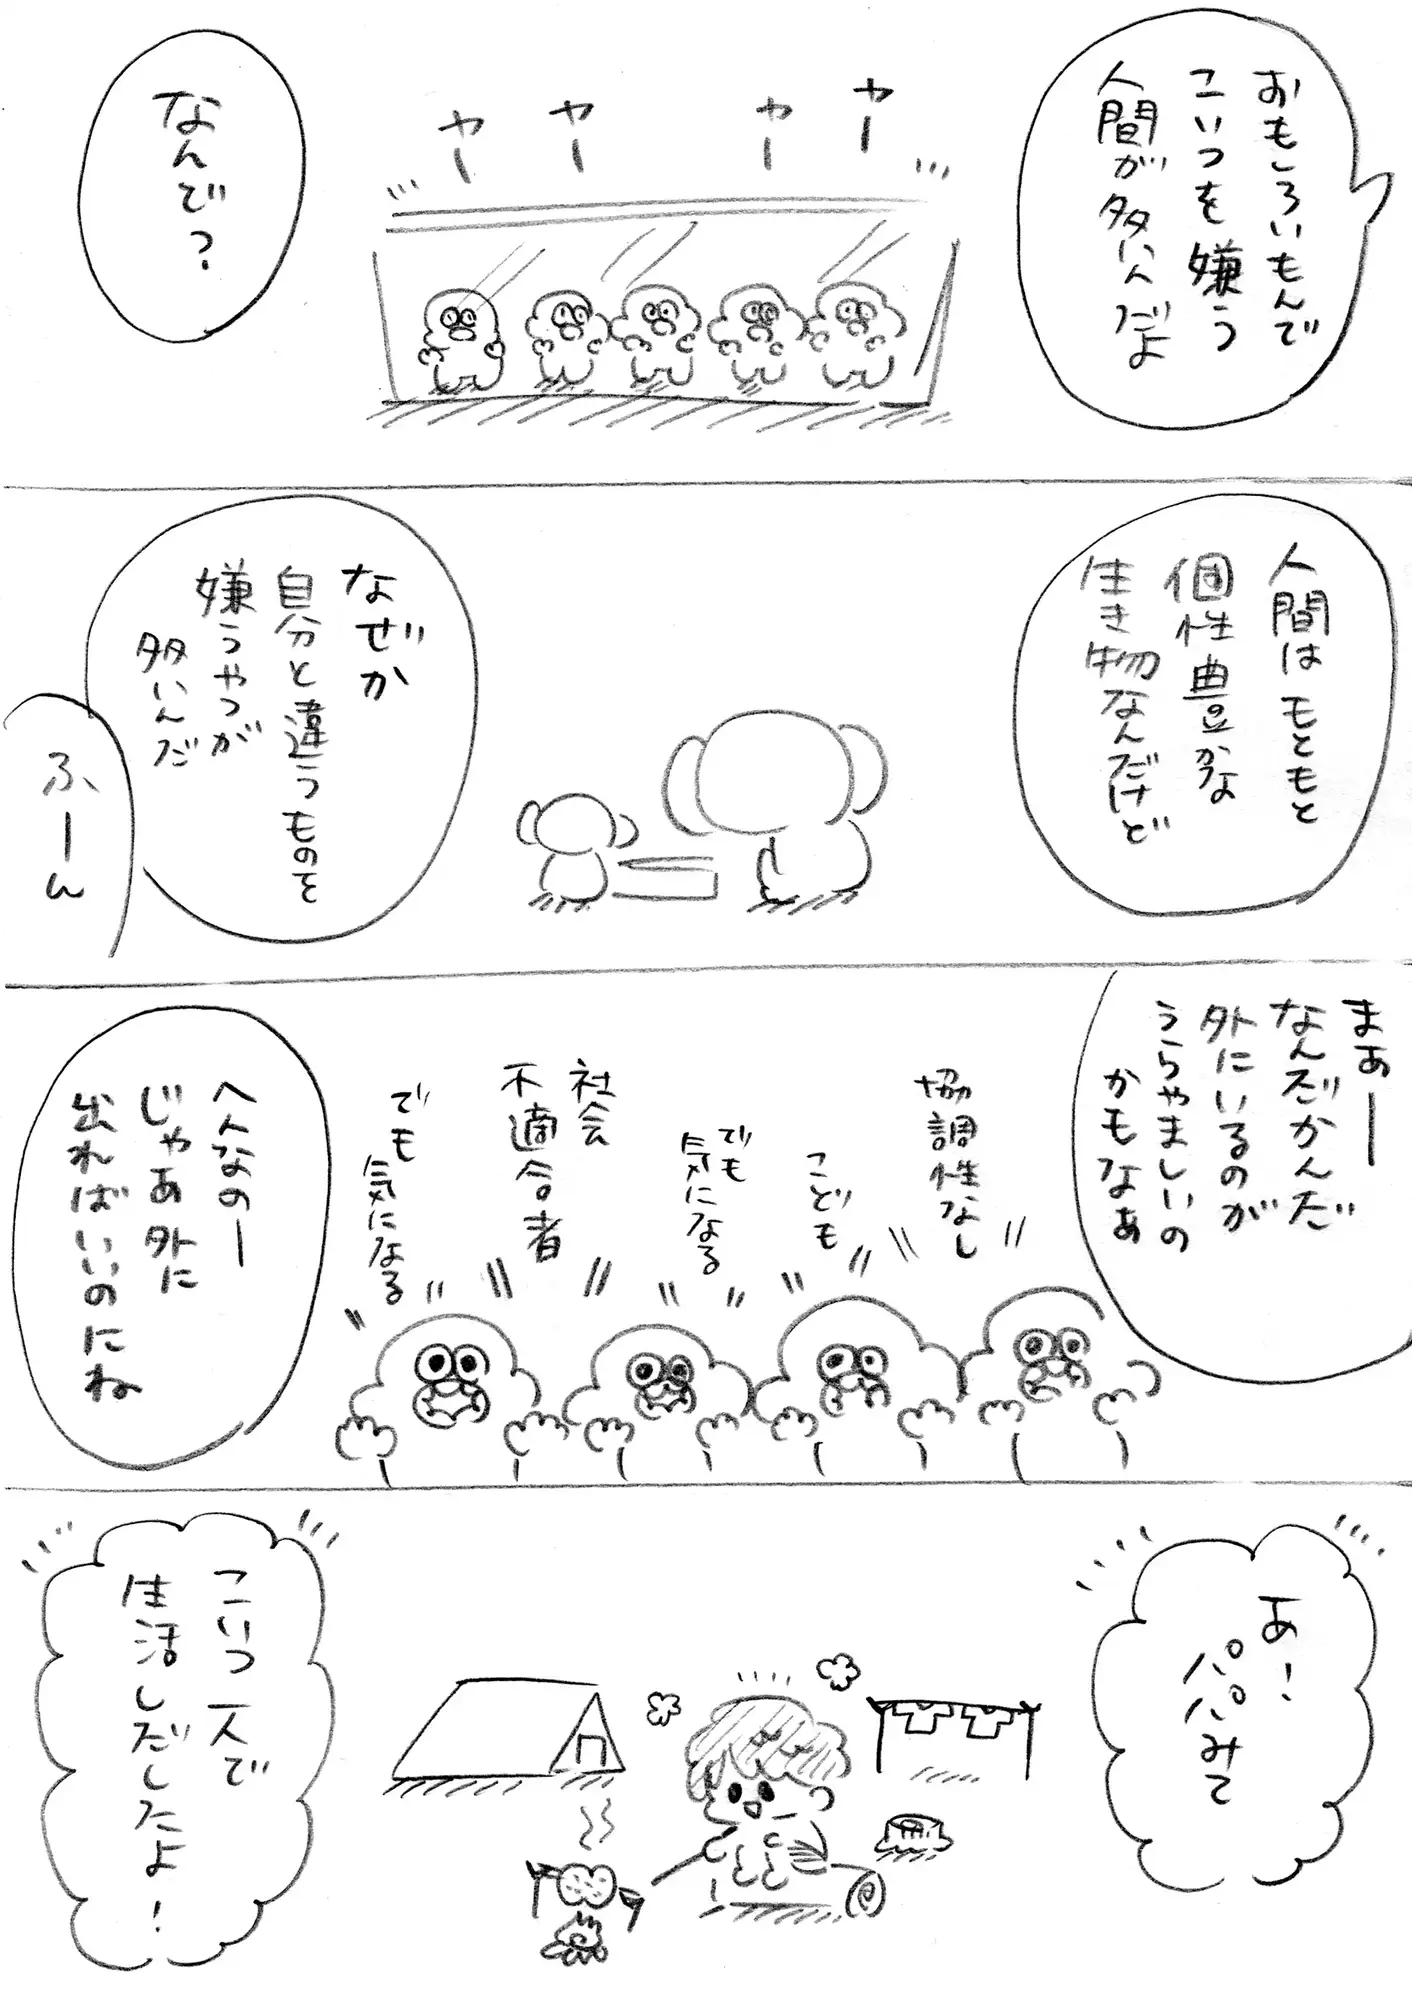 おもしろいもんで
こいつを嫌う
人間が多いんだよ
ヤー
ヤー
ヤー
ヤー
なんで?
人間はもともと
個性豊かな
生き物なんだけど
なぜか
自分と違うものを
嫌うやつが
多いんだ
ふーん
まあー
なんだかんだ
外にいるのが
うらやましいの
かもなぁ
協調性なし
こども
でも
気になる
社会
不適合者
でも
気になる
へんなのー
じゃあ外に
出ればいいのにね
あ!
パパみて
こいつ一人で
生活しだしたよ!